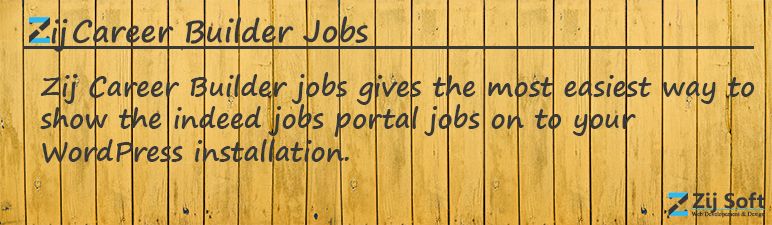 Zij Career Builder Jobs
Zij Career Builder jobs gives the most easiest way to
show the indeed jobs portal jobs on to your
WordPress installation.
Zij Soft
Web Development & Design